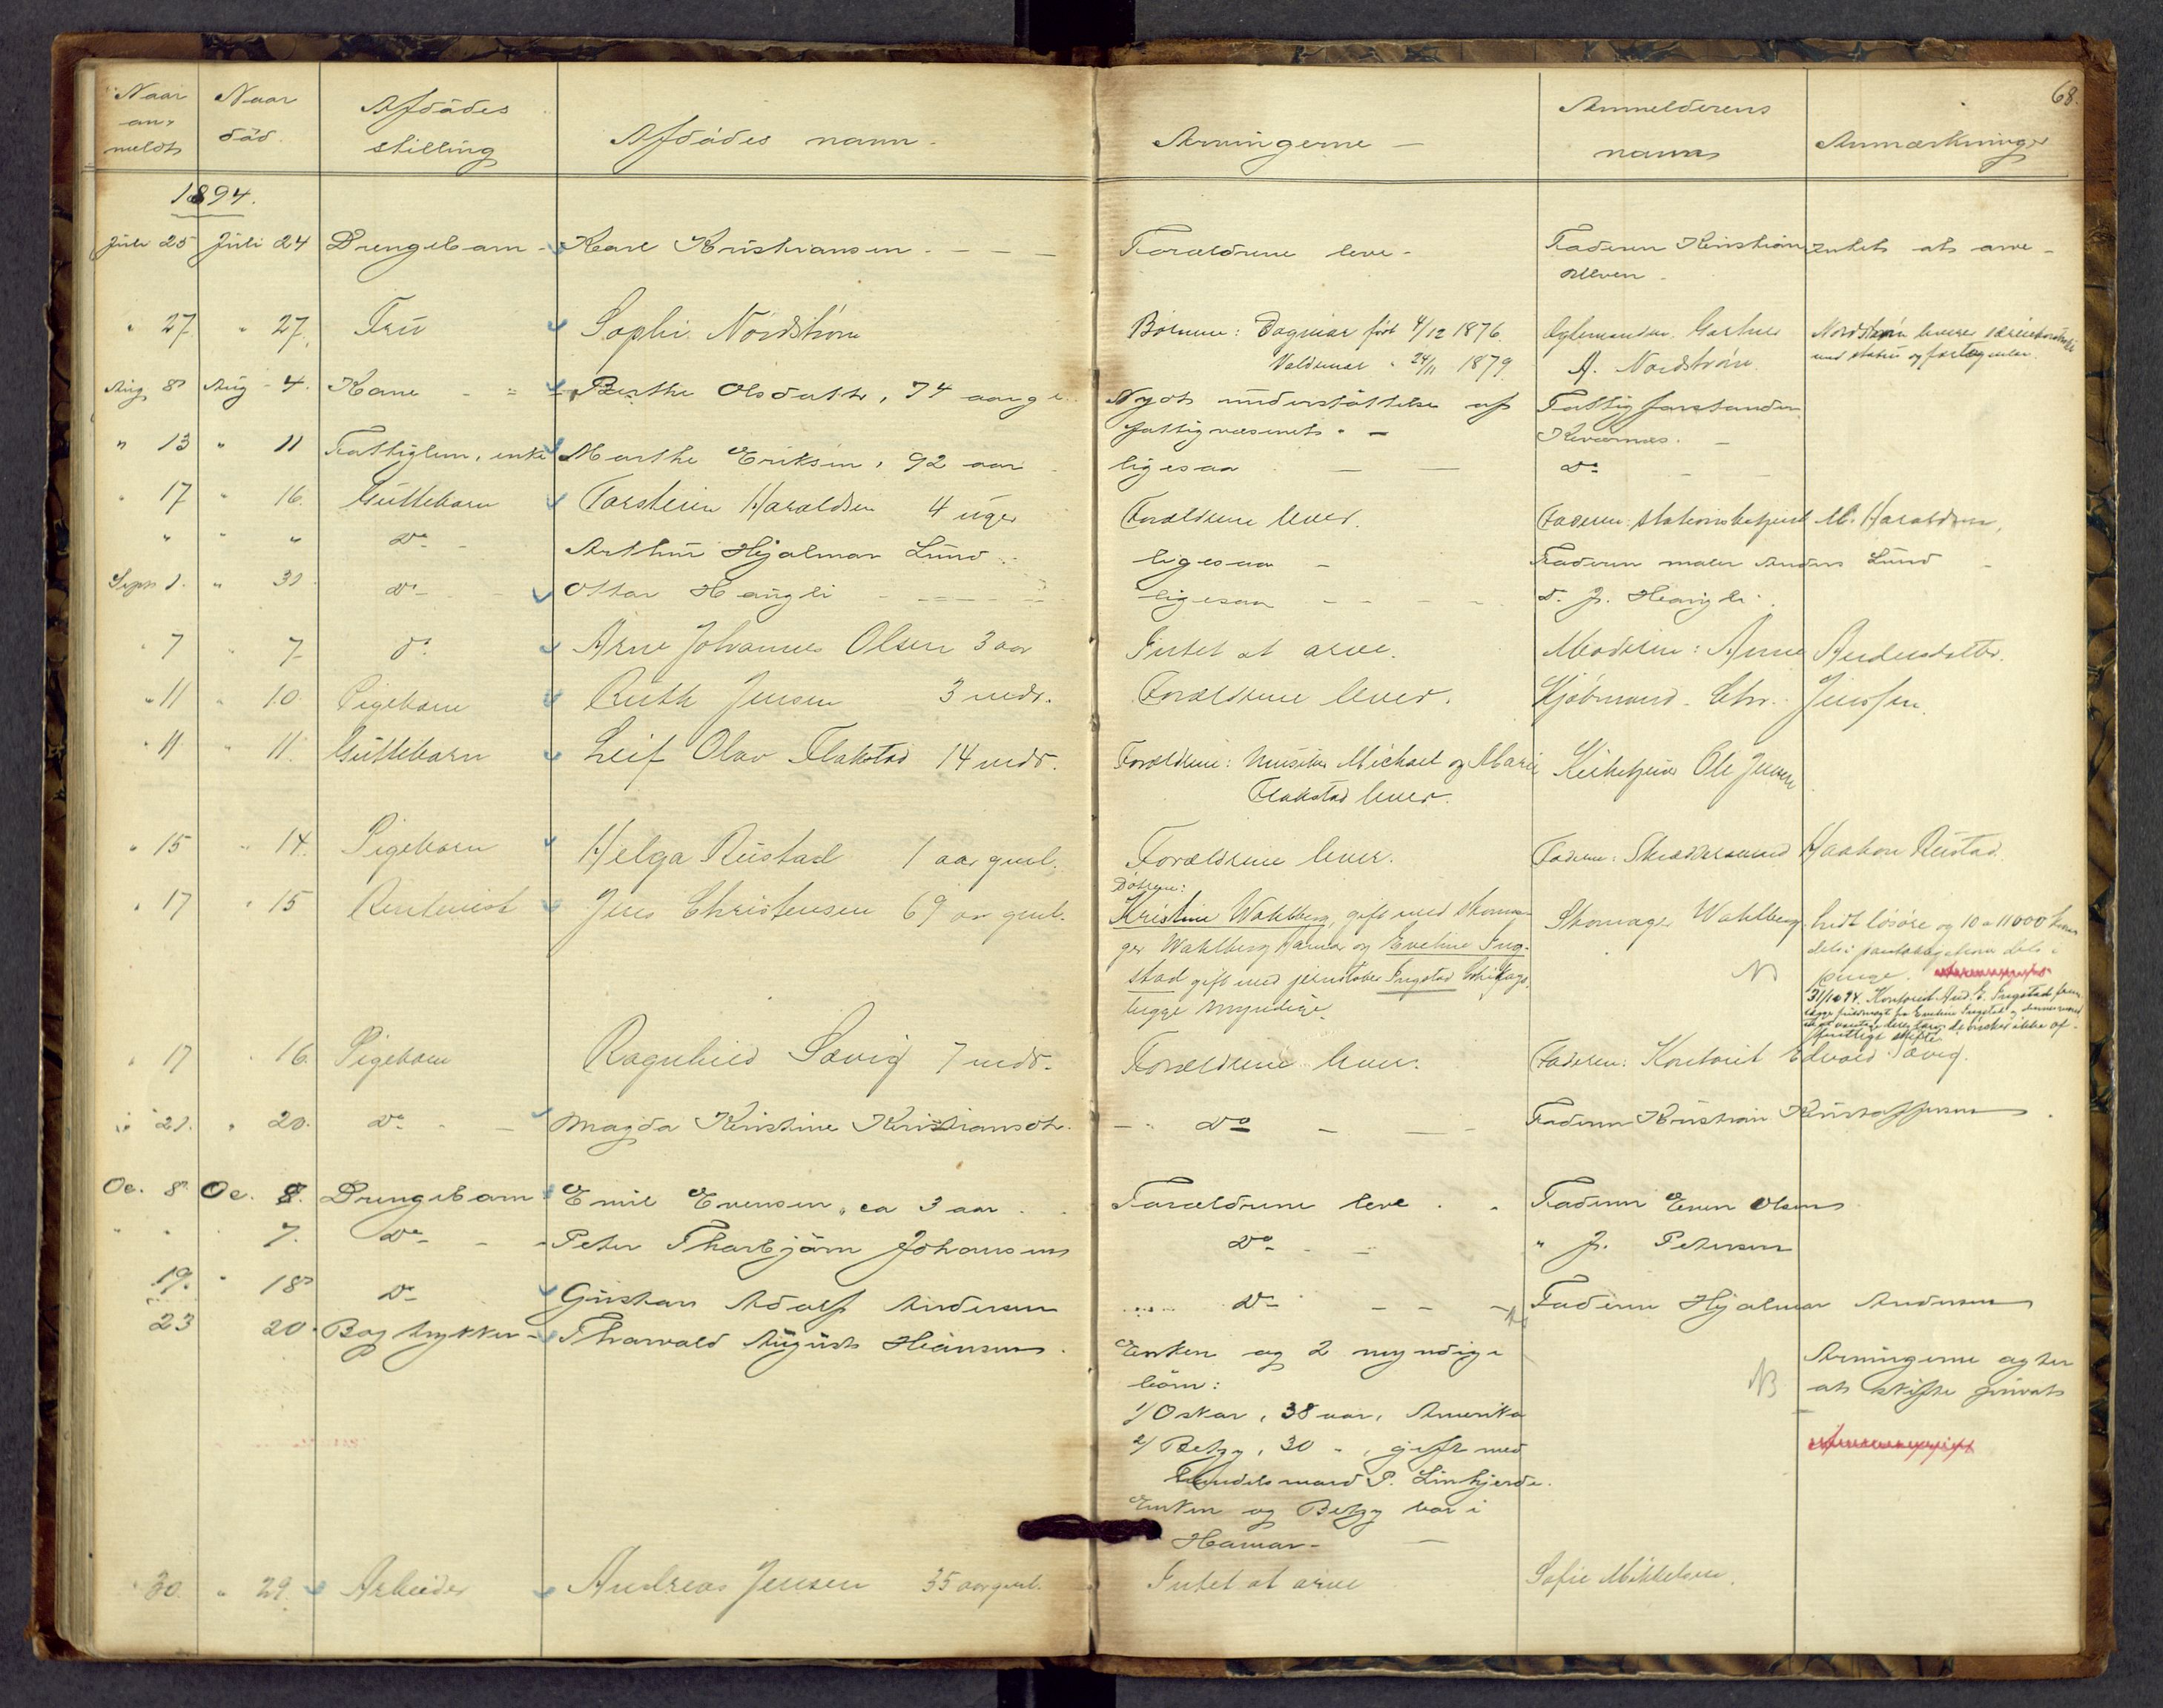 68.
Naar an- meldt
Naar död.
Afdödes stilling
Afdödes navn.
Arvingerne
Anmelderens navn
Anmærkninger
1894.
Juli 25 Juli 24 Drengebarn - Karl Kristiansen - Forældrene leve - Faderen Kristian Intet at arve -
" 27 " 27. Fru Sophi Nordström Børnene: Dagmar født 4/12 1876. Gartner Nordstrøm
Valdemar " 24/11 1879. A. Nordstrøm.
Aug 8 Aug - 4. Kone Berthe Olsdatter, 74 aar Nydt understøttelse af Fattigforstander
fattigvæsenet - Kværnæs.
" 13 " 11 Fattiglem, enke Marthe Eriksen, 92 aar ligesaa do
" 17 " 16. Guttebarn Torstein Haraldsen 4 uger Forældrene lever. Faderen: Stationsbetjent M. Haraldsen,
" " " do Arthur Hjalmar Lund ligesaa - Faderen maler Anders Lund
Sept 1. " 31 do Ottar Haugli ligesaa J. Haugli.
" 7 " 7 do Arne Johannes Olsen 3 aar Intet at arve. Moderen: Anne Andersdatter.
" 11 " 10. Pigebarn Ruth Jensen 3 mdr. Forældrene lever. Kjøbmand Chr. Jenssen.
" 11 " 11. Guttebarn Leif Olav Flakstad 14 mdr. Forældrene: Musiker Michael og Marie Kirketjener Ole Jensen
Flakstad lever.
" 15 " 14. Pigebarn Helga Rustad 1 aar gml. Forældrene lever. Faderen: Skræddersvend Haakon Rustad.
Døtrene:
" 17 " 15 Rentenist Jens Christensen 69 aar gml. Kristine Wahlberg, gift med skoma- Skomager Wahlberg. Lidt løsøre og 10 a 11000 kroner
ger Wahlberg Hamar og Eveline Ing- dels i panteobligationer dels i
stad gift med jernstøber Ingstad Chikago, NB penge.
begge myndige. 31/10 94. Kontorist And. E. Ingstad frem-
lagde fuldmagt fra Eveline Ingstad og hendes mand
ønsker ikke of-
fentligt skifte
" 17 " 16. Pigebarn Ragnhild Sævig 7 mdr. Forældrene lever. Faderen: Kontorist Edvard Sævig.
" 21. " 20. do Magda Kristine Kristiansdtr. do Faderen Kristian Kristoffersen
Oc. 8 Oc. 8. Drengebarn Emil Evensen, ca 3 aar Forældrene leve Faderen Even Olsen
" " 7. do Peter Thorbjörn Johansen do " J. Petersen
19. " 18 do Gustav Adolf Andersen do Faderen Hjalmar Andersen
23 20. Bogtrykker - Thorvald August Hansen. Enken og 2 myndige Arvingerne agter
börn: NB at skifte privat
1/ Oskar, 38 aar, Amerika
2/ Betzy, 30 ", gift med
Handelsmand P. Linkjerde.
Enken og Betzy bor i
Hamar -
" 30. " 29. Arbeider Andreas Jensen 35 aar gml. Intet at arve Sofie Mikkelsen.